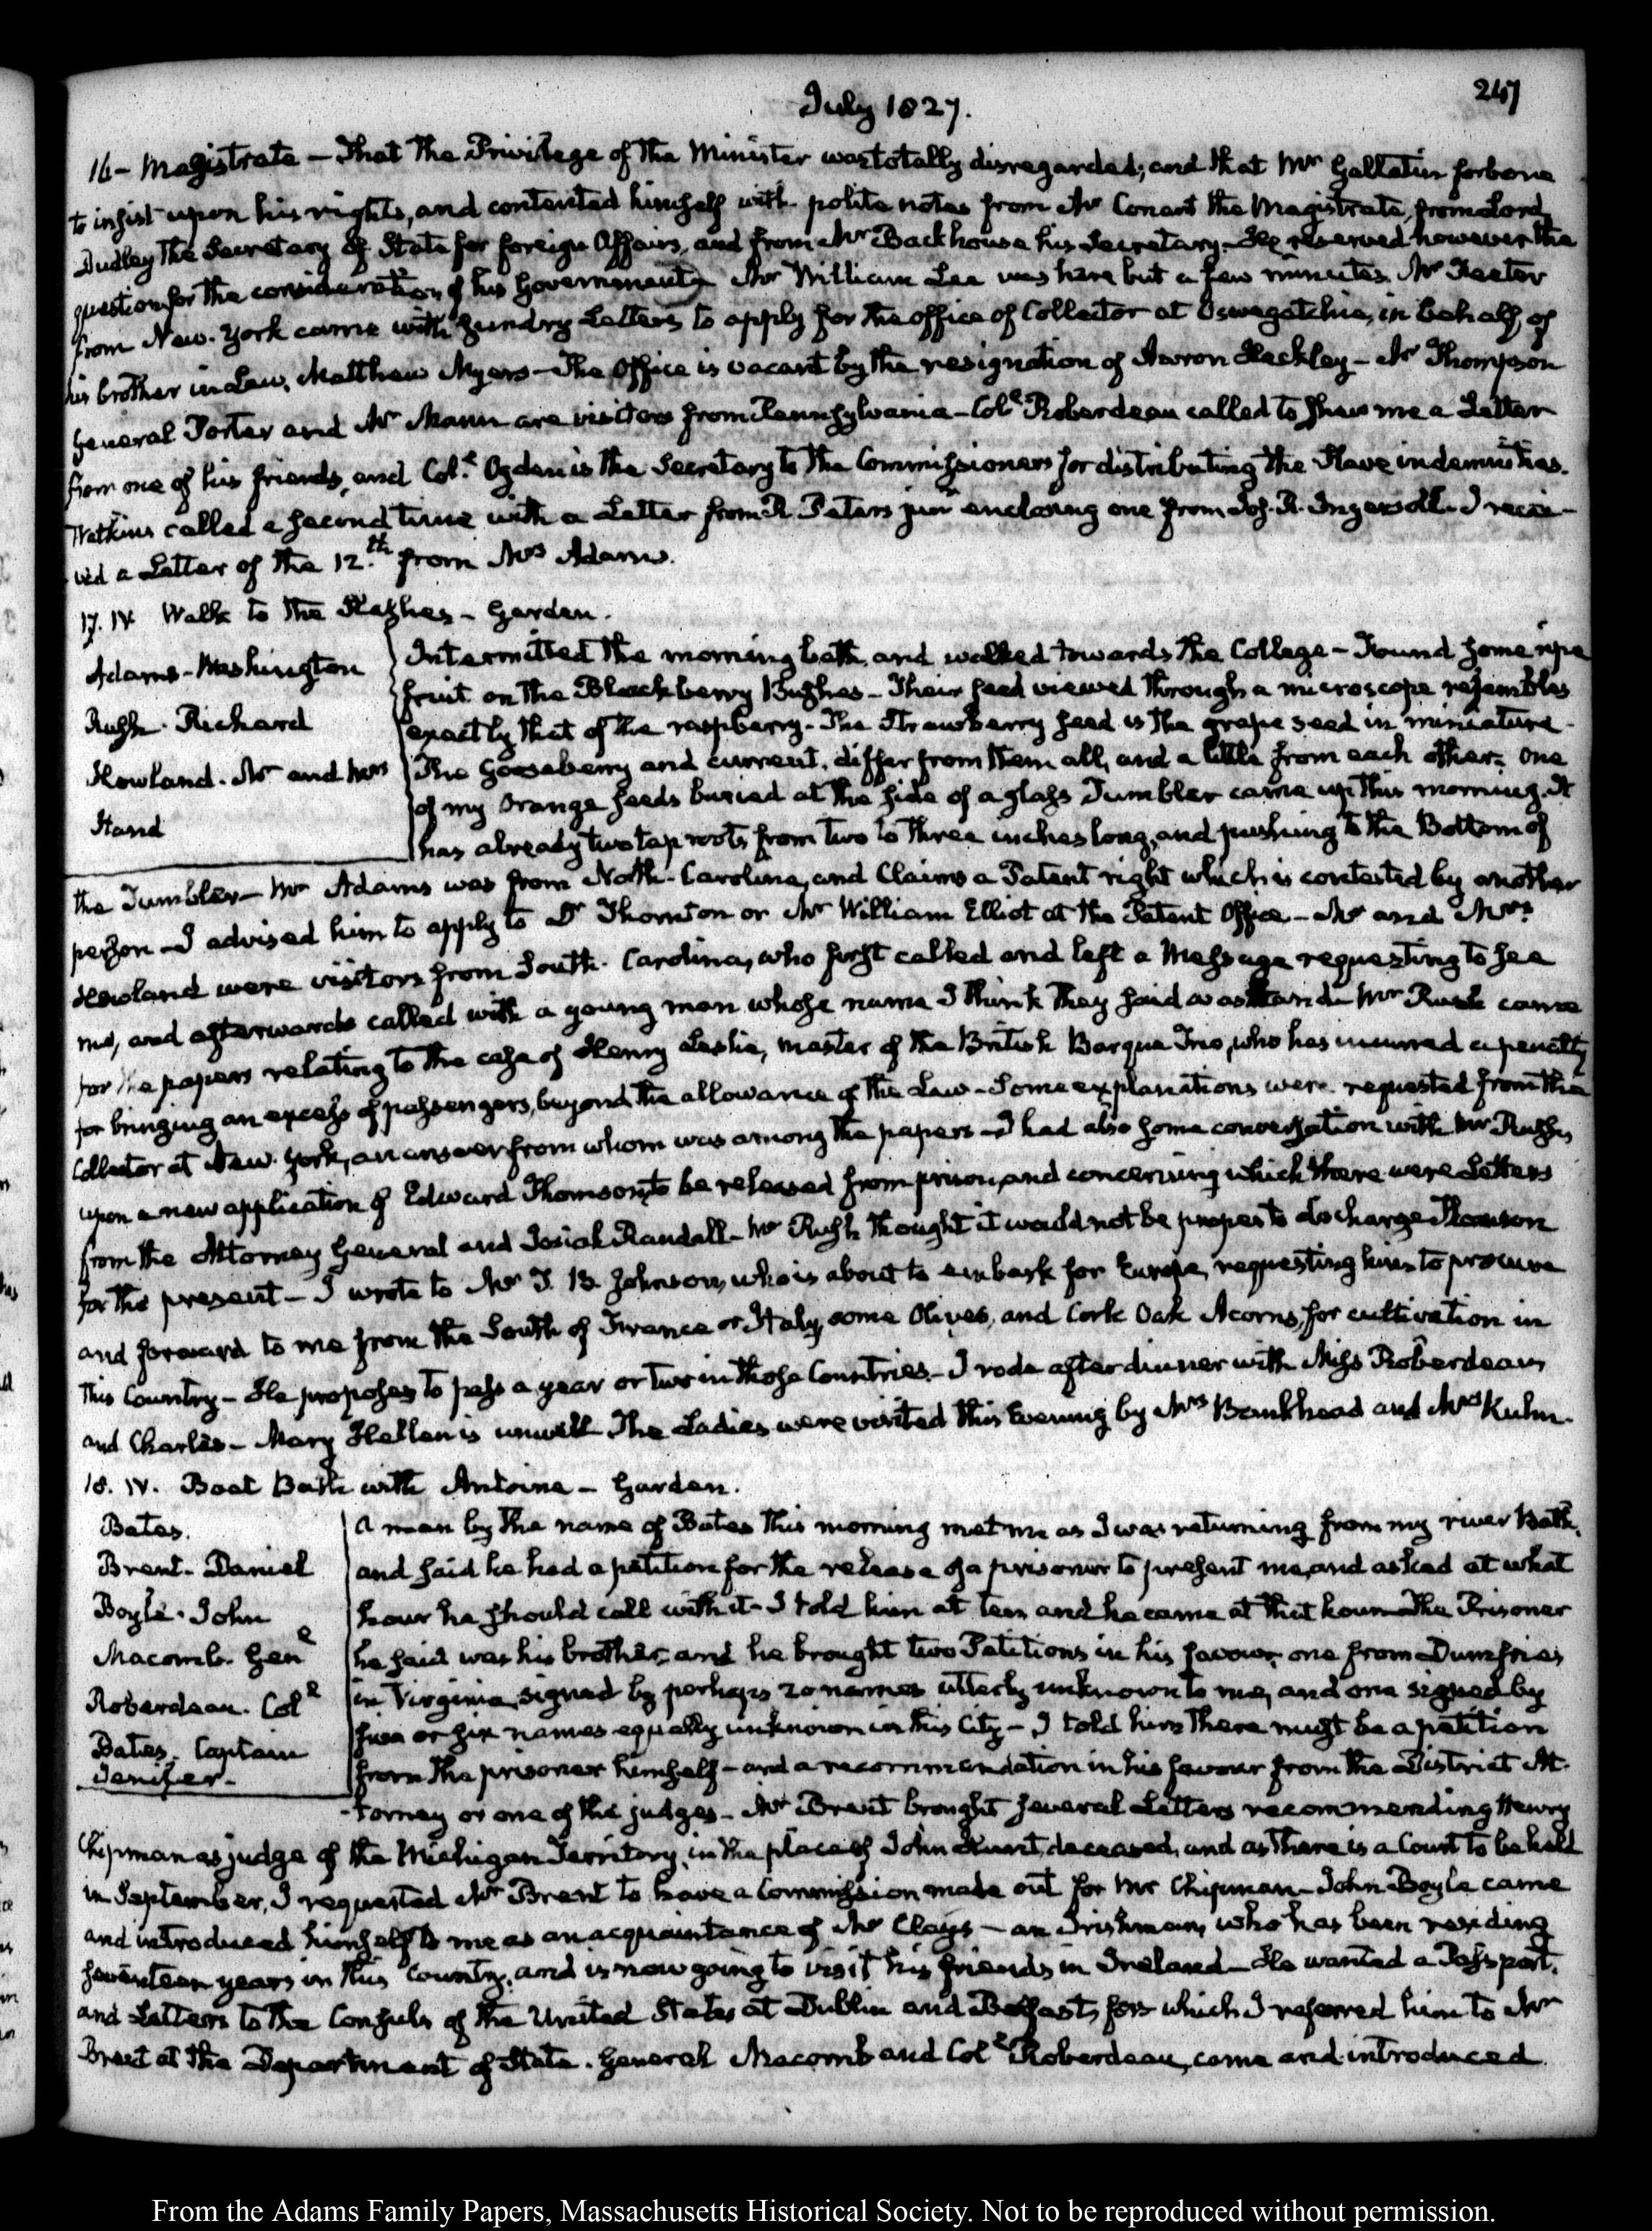 247
July 1827.
16 - Magistrate - That the Privilege of the Minister was totally disregarded; and that Mr Gallatin forbore
to insist upon his rights, and contented himself with polite notes from Mr Conant the Magistrate, from Lord
Dudley the Secretary of State for foreign Affairs, and from Mr Backhouse his Secretary. He reserved however the
question for the consideration of his Government - Mr William Lee was here but a few minutes. Mr
from New-York came with sundry Letters to apply for the office of Collector at Oswegatchie, in behalf of
his brother in Law, Matthew Myers - The Office is vacant by the resignation of Aaron Hackley - Mr Thompson
General Porter and Mr Mann are visitors from Pennsylvania - Coll Roberdeau called to shew me a Letter
from one of his friends, and Coll Ogden is the Secretary to the Commissioners for distributing the Slave indemnities.
Watkins called a second time with a Letter from R. Peters junr enclosing one from Jos. R. Ingersoll. I recei-
ved a Letter of the 12.th from Mrs Adams.
17. IV. Walk to the Slashes - Garden.
Adams - Washington
Rush. Richard
Howland. Mr and Mrs
Hand
Intermitted the morning bath, and walked towards the College - Found some ripe
fruit on the Blackberry Bushes - Their seed viewed through a microscope resembles
exactly that of the raspberry - The Strawberry seed is the grape seed in miniature -
The Gooseberry and currant, differ from them all, and a little from each other. One
of my Orange seeds buried at the side of a glass Tumbler came up this morning. It
has already two tap roots from two to three inches long, and pushing to the Bottom of
the Tumbler - Mr Adams was from North-Carolina, and Claims a Patent right which is contested by another
person - I advised him to apply to Dr Thornton or Mr William Elliot at the Patent Office - Mr and Mrs
Howland were visitors from South-Carolina, who first called and left a Message requesting to see
me, and afterwards called with a young man whose name I think they said was Hand - Mr Rush came
for the papers relating to the case of Henry Leslie, master of the British Barque Trio, who has incurred a penalty
for bringing an excess of passengers, beyond the allowance of the Law - Some explanations were requested from the
Collector at New-York, an answer from whom was among the papers - I had also some conversation with Mr Rush,
upon a new application of Edward Thomson, to be released from prison, and concerning which there were Letters
from the Attorney General and Josiah Randall - Mr Rush thought it would not be proper to discharge Thomson
for the present - I wrote to Mr J. B. Johnson, who is about to embark for Europe, requesting him to procure
and forward to me from the South of France or Italy, some Olives, and Cork Oak Acorns, for cultivation in
this Country - He proposes to pass a year or two in those Countries. - I rode after dinner with Miss Roberdeau,
and Charles - Mary Hellen is unwell. The Ladies were visited this Evening by Mrs Bankhead and Mrs Kuhn.
18. IV. Boat Bath with Antoine - Garden.
Bates.
Brent. Daniel
Boyle. John
Macomb. Genl
Roberdeau. Coll
Bates. Captain
Jenifer.
A man by the name of Bates this morning met me as I was returning from my river Bath,
and said he had a petition for the release of a prisoner to present me, and asked at what
hour he should call with it - I told him at ten and he came at that hour - The Prisoner
he said was his brother, and he brought two Petitions in his favour, one from Dumfries
in Virginia, signed by perhaps 20 names utterly unknown to me, and one signed by
five or six names equally unknown in this City - I told him there must be a petition
from the prisoner himself - and a recommendation in his favour from the District At-
-torney or one of the judges - Mr Brent brought several Letters recommending Henry
Chipman as judge of the Michigan Territory, in the place of John Hunt, deceased, and as there is a Court to be held
in September, I requested Mr Brent to have a Commission made out for Mr Chipman - John Boyle came
and introduced himself to me as an acquaintance of Mr Clay's - an Irishman, who has been residing
seventeen years in this Country, and is now going to visit his friends in Ireland - He wanted a Passport,
and Letters to the Consuls of the United States at Dublin and Belfast, for which I referred him to Mr
Brent at the Department of State. General Macomb and Coll Roberdeau, came and introduced
From the Adams Family Papers, Massachusetts Historical Society. Not to be reproduced without permission.